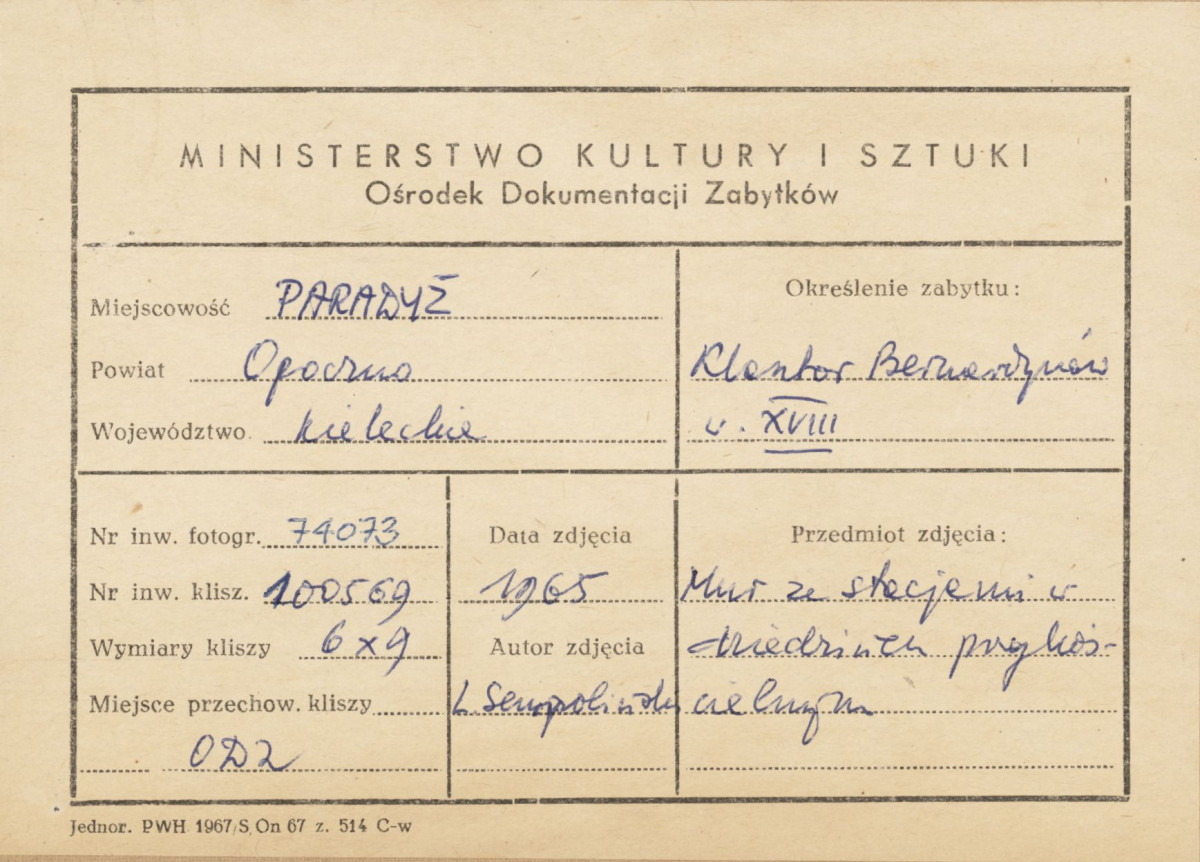 MINISTERSTWO KULTURY I SZTUKI
Ośrodek Dokumentacji Zabytków
Miejscowość PARADYŻ
Powiat Opoczno
Województwo kieleckie
Określenie zabytku:
Klasztor Bernardynów
w. XVIII
Nr inw. fotogr. 74073
Nr inw. klisz. 100569
Wymiary kliszy 6x9
Miejsce przechow. kliszy
ODZ
Data zdjęcia
1965
Autor zdjęcia
L. Sempoliński
Przedmiot zdjęcia:
Mur ze stacjami w
dziedzińcu przykoś-
cielnym
Jednor. PWH 1967/S On 67 z. 514 C-w